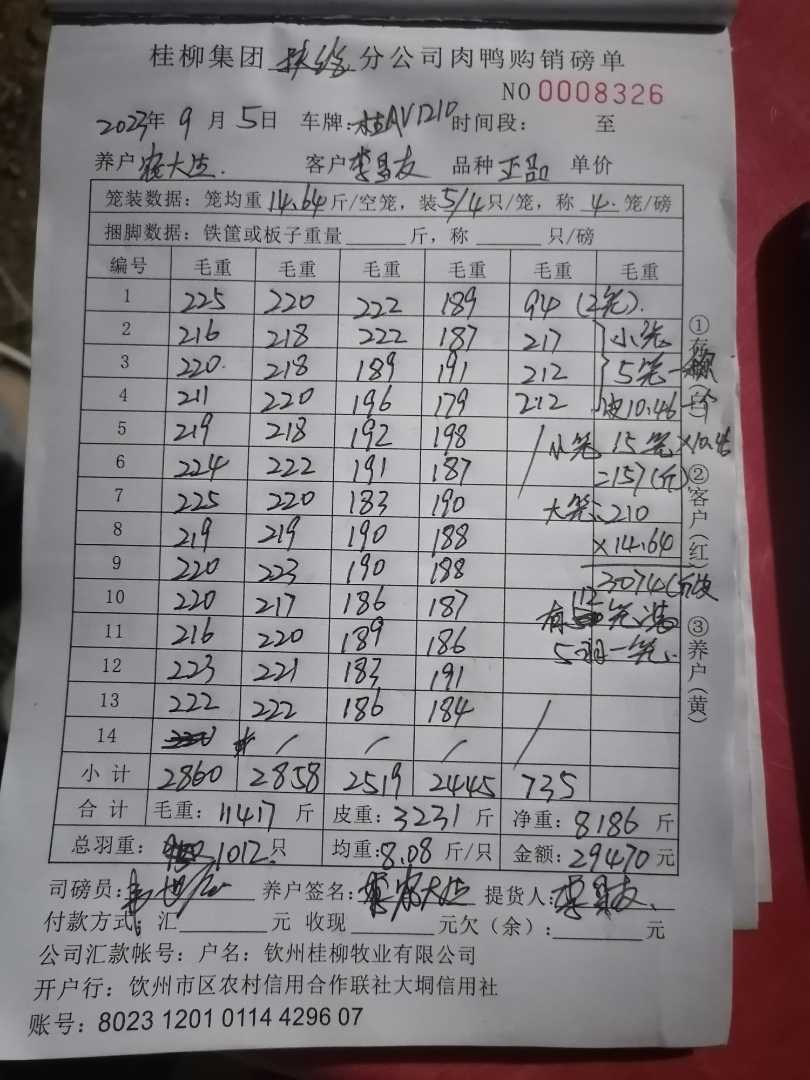 桂柳集团 扶绥 分公司肉鸭购销磅单
NO 0008326
2023年 9 月 5日 车牌:桂AV1210 时间段: 至
养户 客户 李昌友 品种 正品 单价
笼装数据: 笼均重 14.64 斤/空笼, 装 5/4 只/笼, 称 4. 笼/磅
捆脚数据: 铁筐或板子重量 斤, 称 只/磅
编号 毛重 毛重 毛重 毛重 毛重 毛重
1 225 220 222 189 94 (2笼).
2 216 218 222 187 217 小笼
3 220. 218 189 191 212 5笼一
4 211 220 196 179 212 皮10.46一个
5 219 218 192 198 小笼 15笼×10.46
6 224 222 191 187 =157(斤)
7 225 220 183 190 大笼: 210
8 219 219 190 188 ×14.64
9 220 223 190 188 3074(斤)皮
10 220 217 186 187 有 112 笼装
11 216 220 189 186 5 一笼.
12 223 221 183 191
13 222 222 186 184
14
小计 2860 2858 2519 2445 735
合计 毛重: 11417 斤 皮重: 3231 斤 净重: 8186 斤
总羽重: 1012只 均重: 8.08 斤/只 金额: 29470 元
司磅员: 养户签名: 提货人: 李昌友.
付款方式: 汇 元 收现 元欠(余): 元
公司汇款帐号: 户名: 钦州桂柳牧业有限公司
开户行: 钦州市区农村信用合作联社大垌信用社
账号: 8023 1201 0114 4296 07
①存
②客户(红)
③养户(黄)